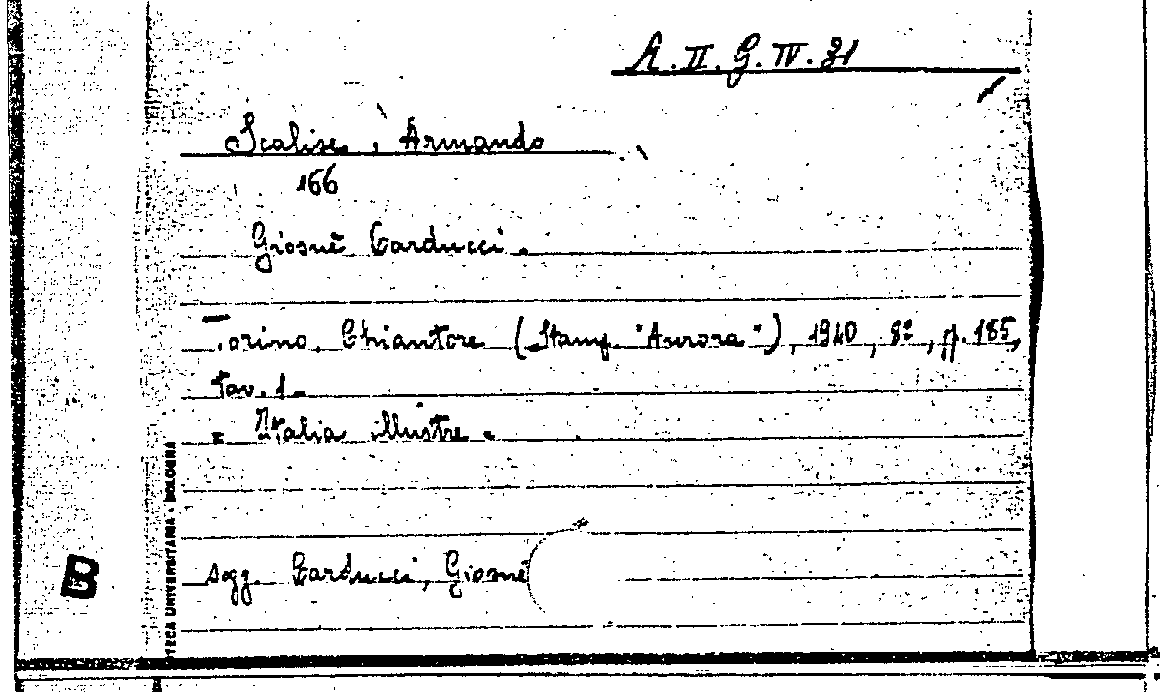 A. II. G. IV. 21
Scalise, Armando
166
Giosuè Carducci.
Torino. Chiantore (Stamp. "Aurora"), 1940, 8º, p. 185,
tav. 1.
= Italia illustre =
sogg. Carducci, Giosuè
B
TECA UNIVERSITARIA - BOLOGNA